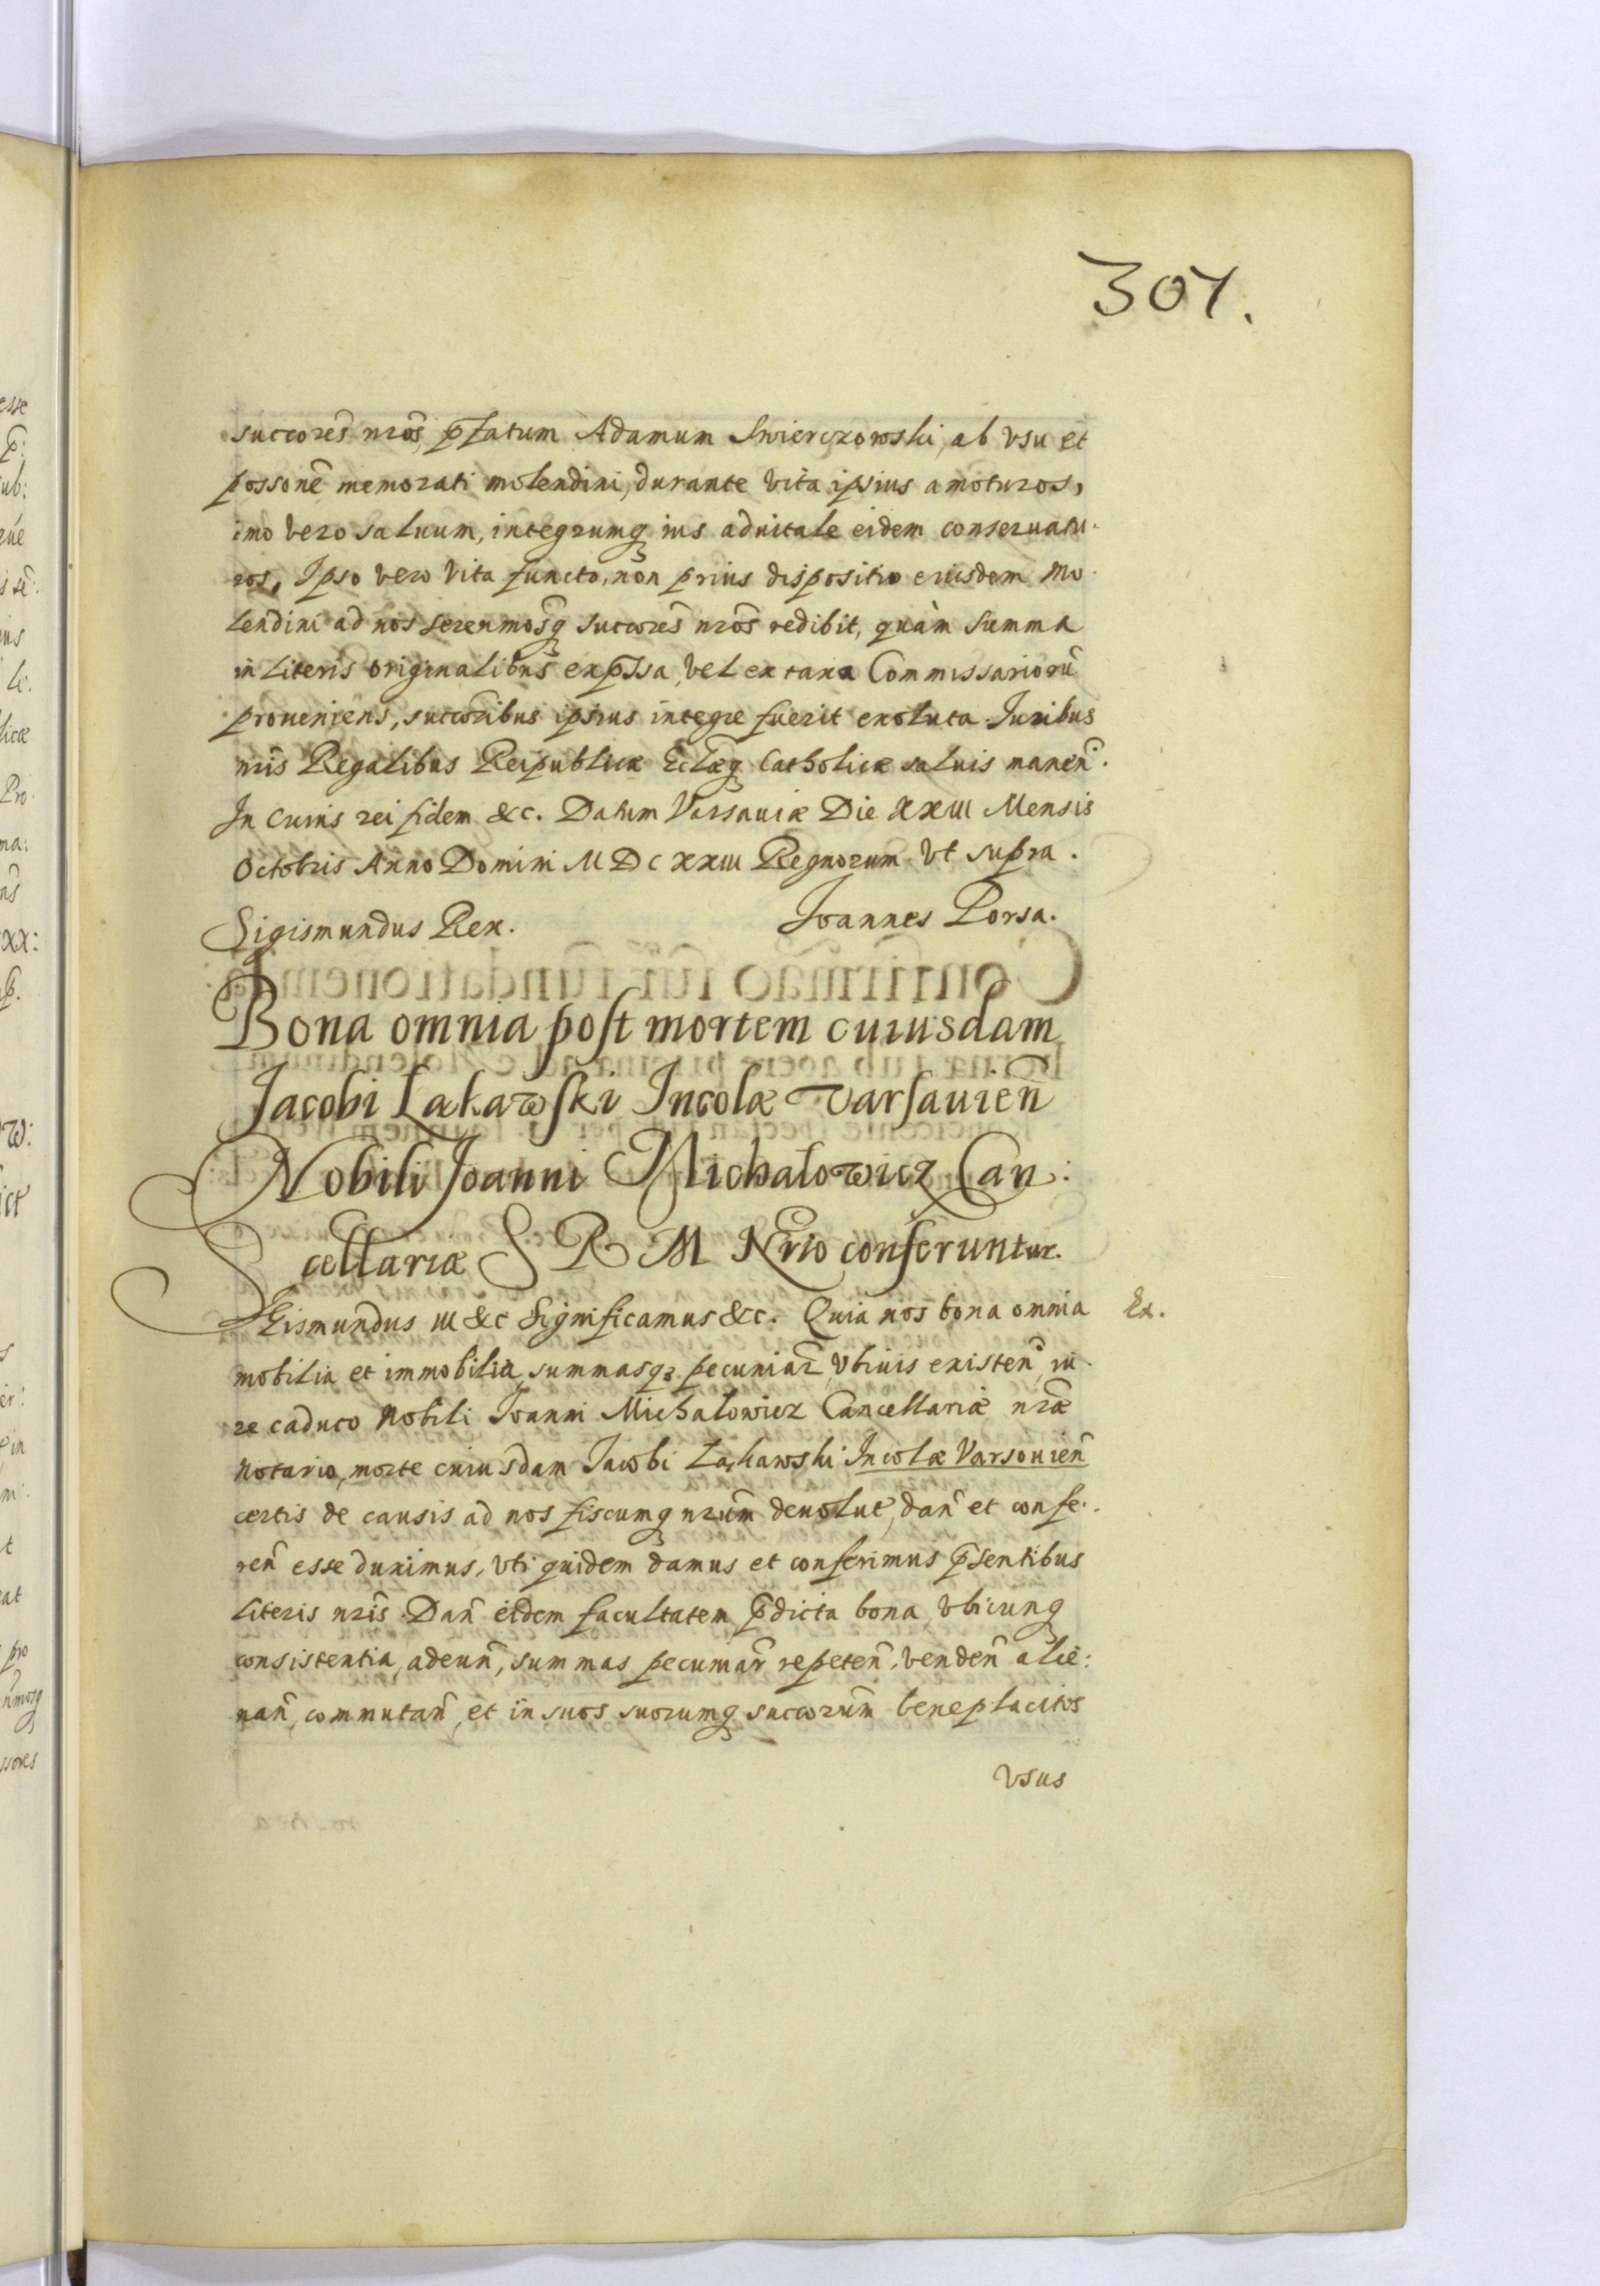 301.
succores nros, pfatum Adamum Swierczowski, ab vsu et
possone memorati molendini, durante vita ipsius amoturos,
imo vero saluum, integrumq ius aduitale eidem conseruatu-
ros, Ipso vero vita functo, non prius dispositio eiusdem Mo-
lendini ad nos serenmosq succores nros redibit, quàm summa
in literis originalibus expssa, vel ex taxa Commissarioru
proueniens, succoribus ipsius integre fuerit exoluta. Iuribus
nris Regalibus Reipublicæ Eclæq Catholicæ saluis manen.
In cuius rei fidem &c. Datum Varsauiæ Die XXIII Mensis
Octobris Anno Domini MDCXXIII Regnorum vt supra.
Sigismundus Rex. Joannes Borsa.
Bona omnia post mortem cuiusdam
Jacobi Łąkawski Incolæ Varsauien
Nobili Joanni Michalowicz Can:
cellariæ S R M Nrio conferuntur.
Sigismundus III &c Significamus &c. Quia nos bona omnia
Ex.
mobilia et immobilia, summasq; pecuniar, vbiuis existen, iu-
re caduco Nobili Joanni Michalowicz Cancellariæ nræ
Notario, morte cuiusdam Jacobi Łąkawski Incolæ Varsouien
certis de causis ad nos fiscumq nrum deuolut, dan et confe-
ren esse duximus, vti quidem damus et conferimus psentibus
literis nris. Dan eidem facultatem pdicta bona vbicunq
consistentia, adeun, summas pecuniar repeten, venden alie:
nan, commutan, et in suos suorumq succorum beneplacitos
vsus